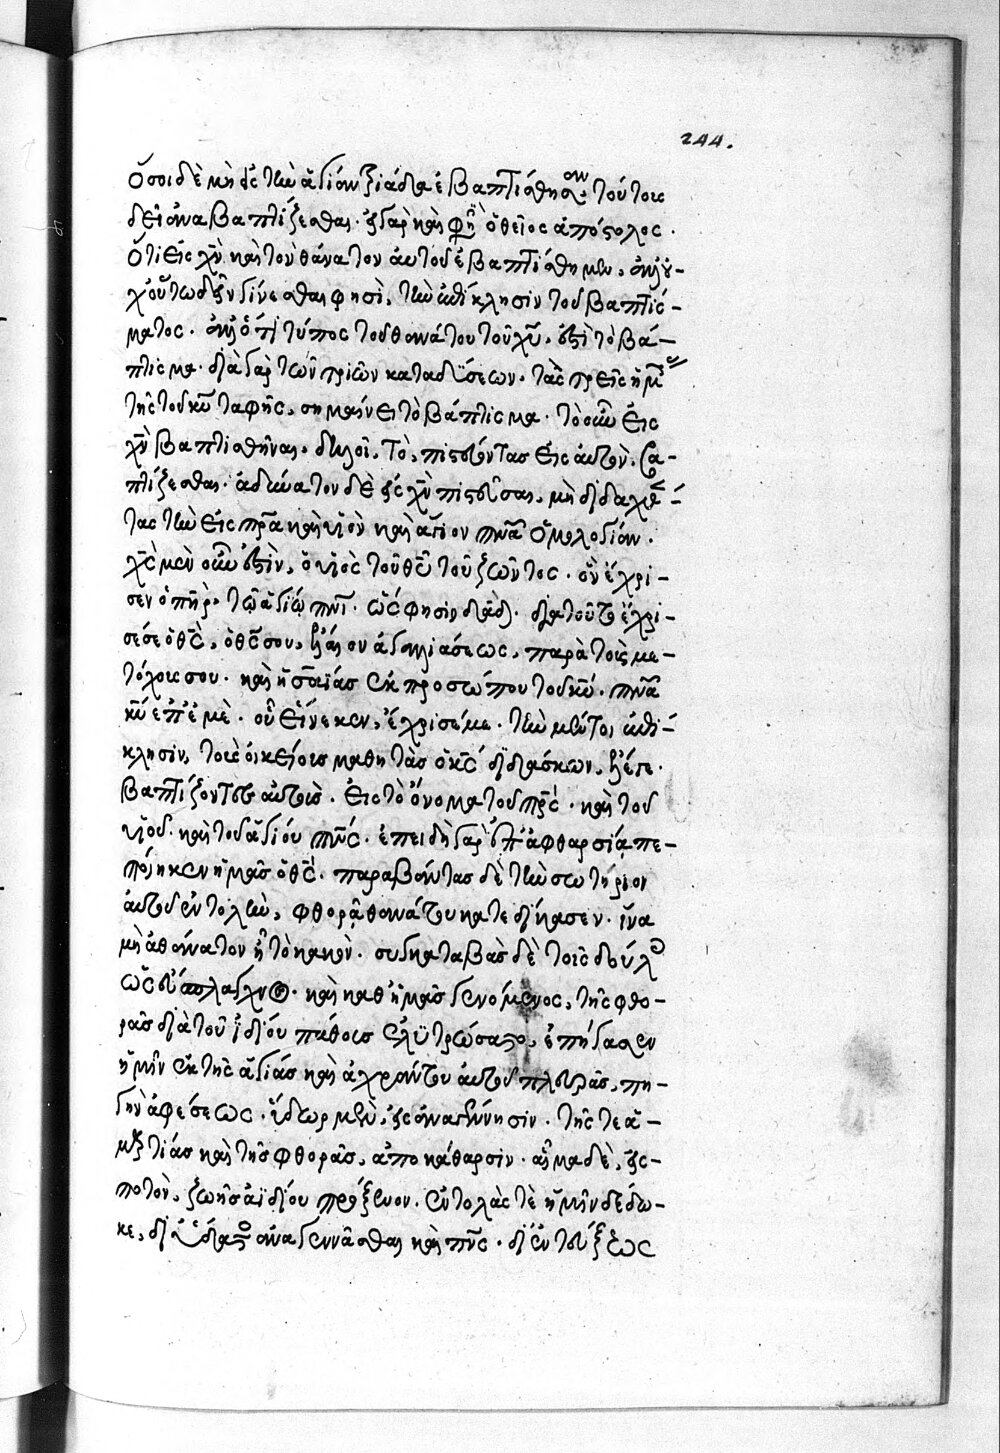 244.
Ὅσοι δὲ μὴ εἰς τὴν ἁγίαν τριάδα ἐβαπτίσθησαν, τούτους
δεῖ ἀναβαπτίζεσθαι. εἰ γὰρ καὶ φησὶν ὁ θεῖος ἀπόστολος.
Ὅτι εἰς χν καὶ τὸν θάνατον αὐτοῦ ἐβαπτίσθημεν,
χ οὕτω δεῖν γίνεσθαι φησὶ, τὴν ἐπίκλησιν τοῦ βαπτίσ-
ματος. ἀλλ' ὅτι τύπος τοῦ θανάτου τοῦ χυ, ἐστὶ τὸ βά-
πτισμα. διὰ γὰρ τῶν τριῶν καταδύσεων. τὰς τρεῖς ἡμέρας
τῆς τοῦ κυ ταφῆς, σημαίνει τὸ βάπτισμα. τὸ οὖν εἰς
χν βαπτισθῆναι, δηλοῖ, τὸ, πιστεύοντας εἰς αὐτὸν, βα-
πτίζεσθαι. ἀδύνατον δὲ εἰς χν πιστεῦσαι, μὴ διδαχθέν-
τας τὴν εἰς πρα καὶ υἱὸν καὶ ἅγιον πνα ὁμολογίαν.
χς μὲν οὖν ἐστὶν, ὁ υἱὸς τοῦ θυ τοῦ ζῶντος. ὃν ἔχρι-
σεν ὁ πηρ, τῷ ἁγίῳ πνι. ὥς φησιν δαδ. διὰ τοῦτο ἔχρι-
σέ σε ὁ θς, ὁ θς σου, ἔλαιον ἀγαλλιάσεως, παρὰ τοὺς με-
τόχους σου. καὶ ἡσαΐας ἐκ προσώπου τοῦ κυ. πνα
κυ ἐπ' ἐμὲ. οὗ εἵνεκεν, ἔχρισέ με. τὴν μέντοι ἐπί-
κλησιν, τοὺς οἰκείους μαθητὰς ὁ κς διδάσκων, ἔλεγε.
βαπτίζοντες αὐτοὺς. εἰς τὸ ὄνομα τοῦ πρς. καὶ τοῦ
υἱοῦ. καὶ τοῦ ἁγίου πνς. ἐπειδὴ γὰρ ἐπ' ἀφθαρσίᾳ πε-
ποίηκεν ἡμᾶς ὁ θς. παραβάντας δὲ τὴν σωτήριον
αὐτοῦ ἐντολὴν, φθορᾷ θανάτου κατεδίκασεν. ἵνα
μὴ ἀθάνατον ᾖ τὸ κακὸν. συγκαταβὰς δὲ τοῖς δούλοις
ὡς εὔσπλαγχνος. καὶ καθ' ἡμᾶς γενόμενος, τῆς φθο-
ρᾶς διὰ τοῦ ἰδίου πάθους ἐλυτρώσατο, ἐπήγασεν
ἡμῖν ἐκ τῆς ἁγίας καὶ ἀχράντου αὐτοῦ πλευρᾶς, πη-
γὴν ἀφέσεως. ὕδωρ μὲν, εἰς ἀναγέννησιν. τῆς τε ἁ-
μαρτίας καὶ τῆς φθορᾶς, ἀποκάθαρσιν. αἷμα δὲ, εἰς
ποτὸν, ζωῆς ἀϊδίου πρόξενον. ἐντολὰς τὲ ἡμῖν δέδω-
κε, δι' ὕδατος ἀναγεννᾶσθαι καὶ πνς. δι' ἐντεύξεως